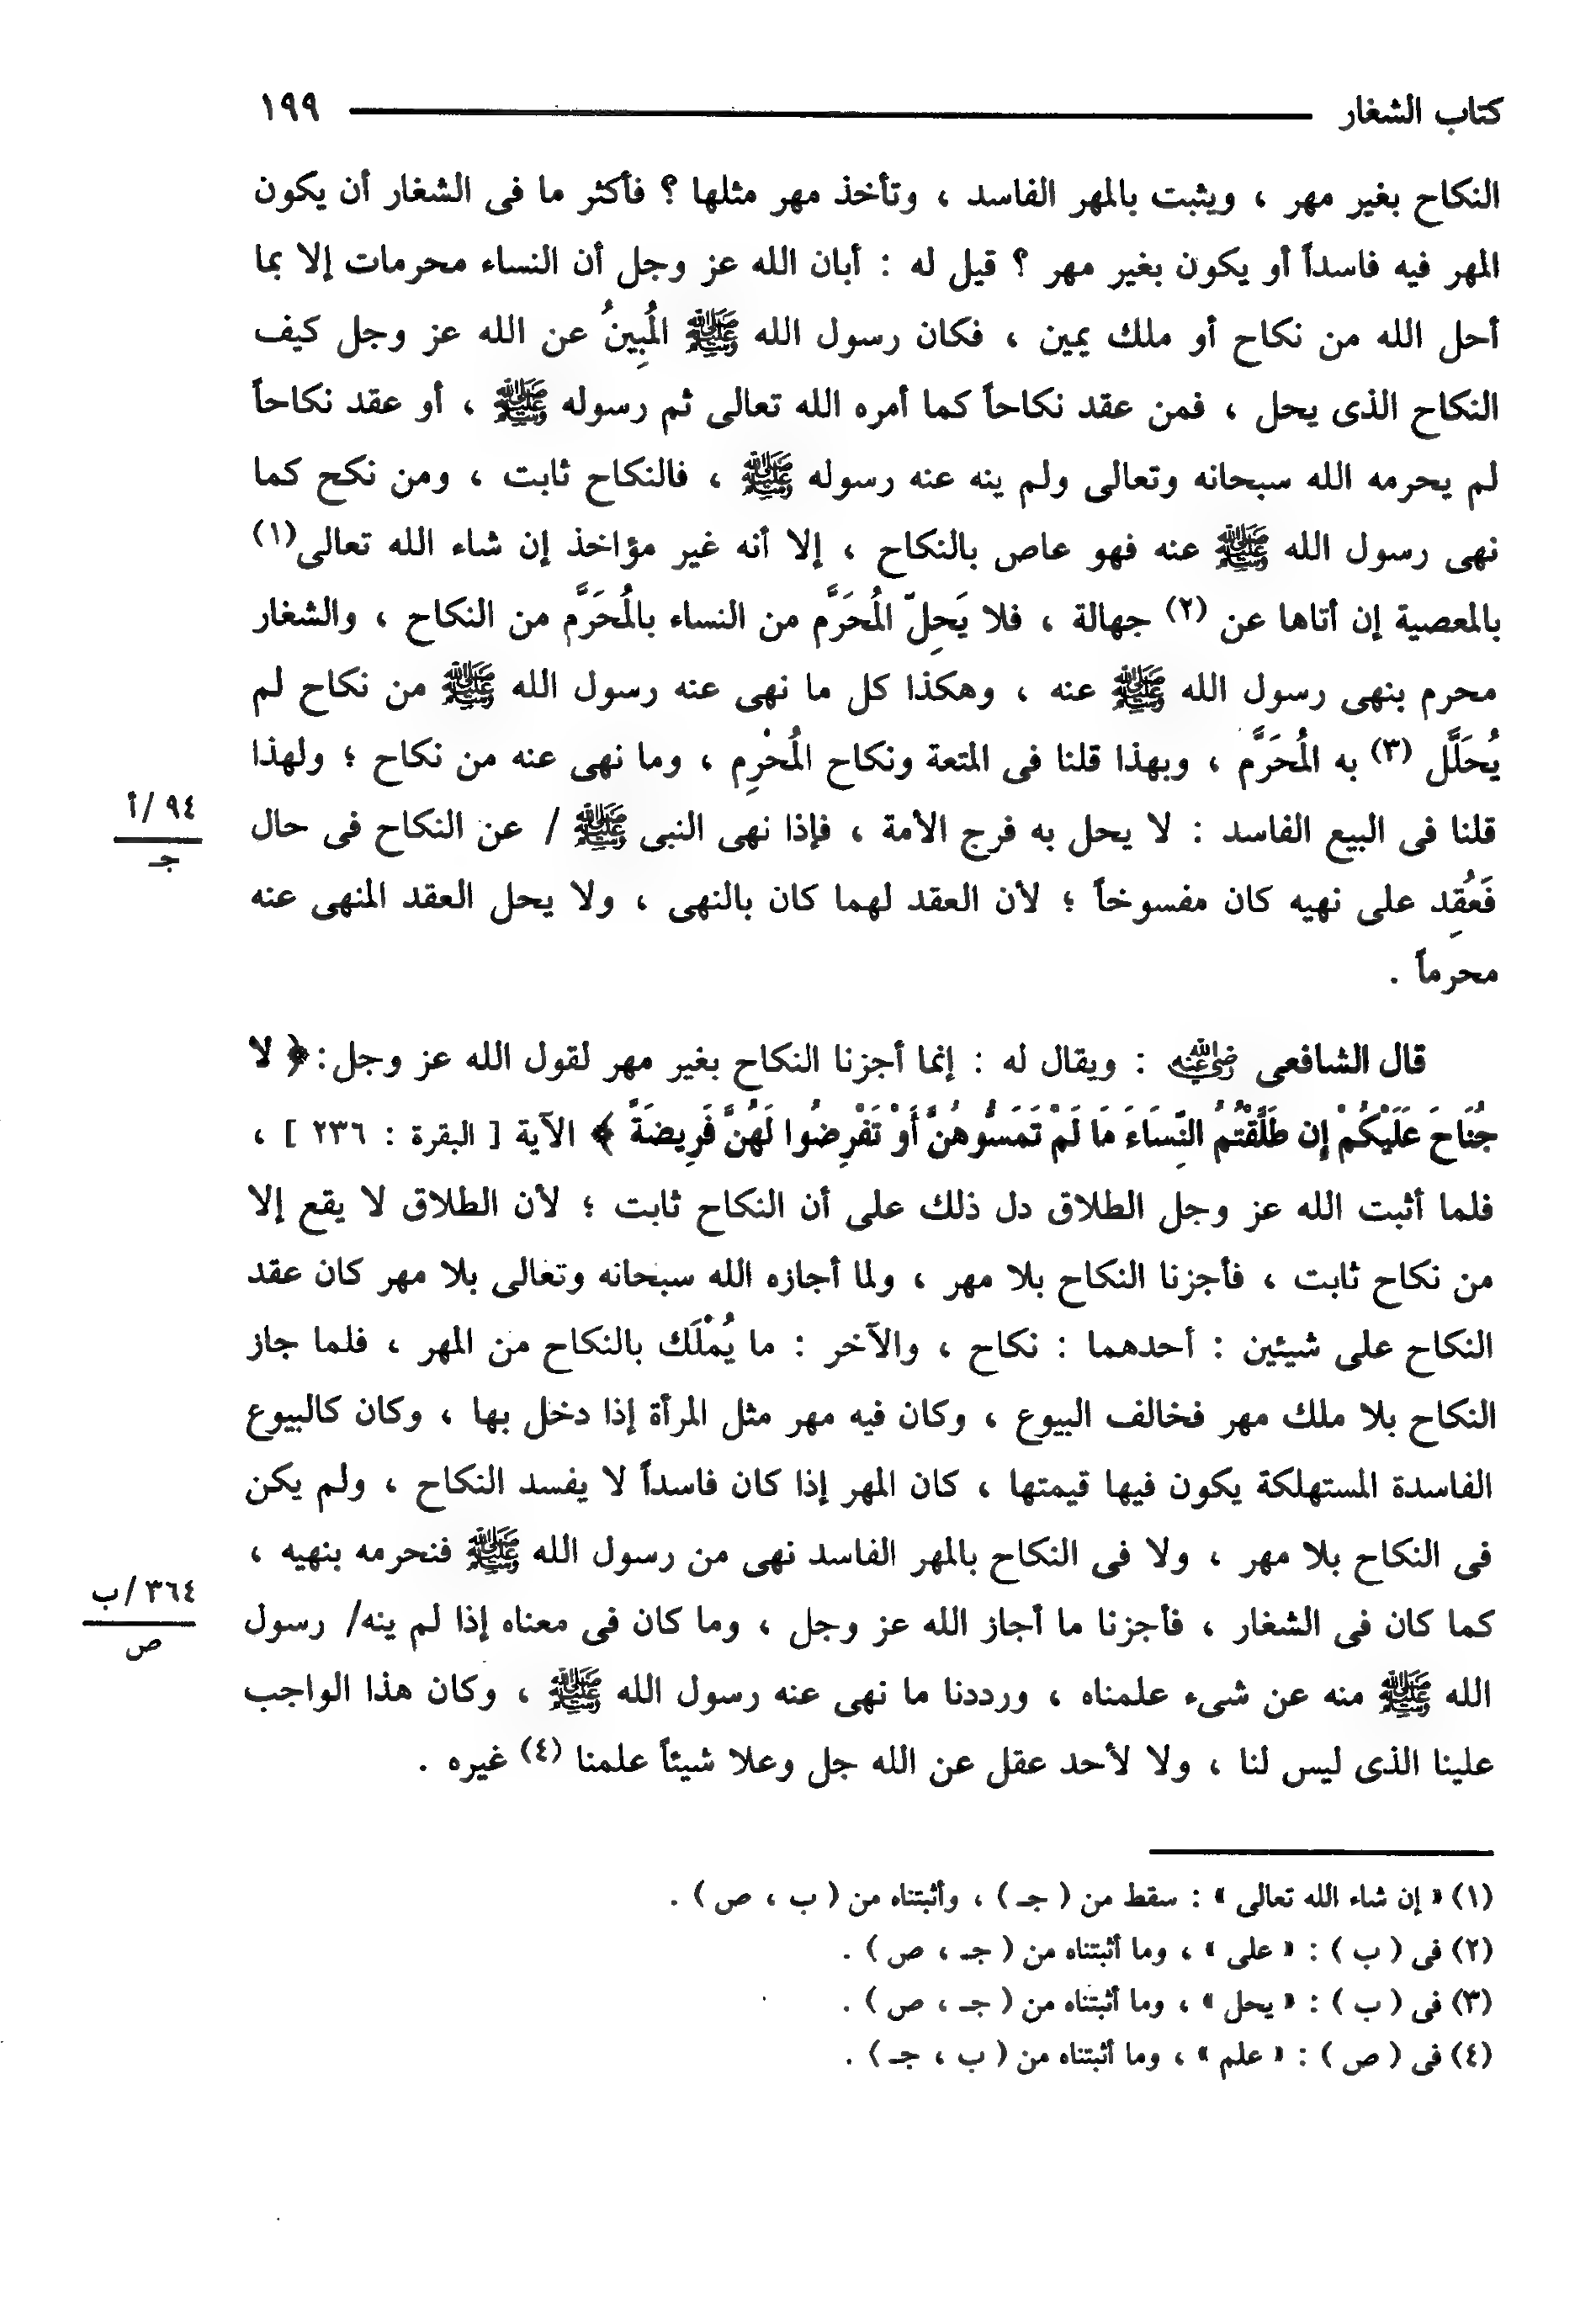 كتاب الشغار ١٩٩
النكاح بغير مهر ، ويثبت بالمهر الفاسد ، وتأخذ مهر مثلها ؟ فأكثر ما فى الشغار أن يكون
المهر فيه فاسداً أو يكون بغير مهر ؟ قيل له : أبان الله عز وجل أن النساء محرمات إلا بما
أحل الله من نكاح أو ملك يمين ، فكان رسول الله ﷺ المُبِينُ عن الله عز وجل كيف
النكاح الذى يحل ، فمن عقد نكاحاً كما أمره الله تعالى ثم رسوله ﷺ ، أو عقد نكاحاً
لم يحرمه الله سبحانه وتعالى ولم ينه عنه رسوله ﷺ ، فالنكاح ثابت ، ومن نكح كما
نهى رسول الله ﷺ عنه فهو عاص بالنكاح ، إلا أنه غير مؤاخذ إن شاء الله تعالى(١)
بالمعصية إن أتاها عن (٢) جهالة ، فلا يَحِلّ المُحَرَّم من النساء بالمُحَرَّم من النكاح ، والشغار
محرم بنهى رسول الله ﷺ عنه ، وهكذا كل ما نهى عنه رسول الله ﷺ من نكاح لم
يُحَلَّل (٣) به المُحَرَّم ، وبهذا قلنا فى المتعة ونكاح المُحْرِم ، وما نهى عنه من نكاح ؛ ولهذا
قلنا فى البيع الفاسد : لا يحل به فرج الأمة ، فإذا نهى النبى ﷺ / عن النكاح فى حال
٩٤ /أ
جـ
فَعُقِد على نهيه كان مفسوخاً ؛ لأن العقد لهما كان بالنهى ، ولا يحل العقد المنهى عنه
محرماً .
قال الشافعى رضي الله عنه : ويقال له : إنما أجزنا النكاح بغير مهر لقول الله عز وجل : ﴿ لا
جُنَاحَ عَلَيْكُمْ إِن طَلَّقْتُمُ النِّسَاءَ مَا لَمْ تَمَسُّوهُنَّ أَوْ تَفْرِضُوا لَهُنَّ فَرِيضَةً ﴾ الآية [ البقرة : ٢٣٦ ] ،
فلما أثبت الله عز وجل الطلاق دل ذلك على أن النكاح ثابت ؛ لأن الطلاق لا يقع إلا
من نكاح ثابت ، فأجزنا النكاح بلا مهر ، ولما أجازه الله سبحانه وتعالى بلا مهر كان عقد
النكاح على شيئين : أحدهما : نكاح ، والآخر : ما يُمْلَك بالنكاح من المهر ، فلما جاز
النكاح بلا ملك مهر فخالف البيوع ، وكان فيه مهر مثل المرأة إذا دخل بها ، وكان كالبيوع
الفاسدة المستهلكة يكون فيها قيمتها ، كان المهر إذا كان فاسداً لا يفسد النكاح ، ولم يكن
فى النكاح بلا مهر ، ولا فى النكاح بالمهر الفاسد نهى من رسول الله ﷺ فنحرمه بنهيه ،
كما كان فى الشغار ، فأجزنا ما أجاز الله عز وجل ، وما كان فى معناه إذا لم ينه/ رسول
٣٦٤ /ب
ص
الله ﷺ منه عن شىء علمناه ، ورددنا ما نهى عنه رسول الله ﷺ ، وكان هذا الواجب
علينا الذى ليس لنا ، ولا لأحد عقل عن الله جل وعلا شيئاً علمنا (٤) غيره .
(١) « إن شاء الله تعالى » : سقط من ( جـ ) ، وأثبتناه من ( ب ، ص ) .
(٢) فى ( ب ) : « على » ، وما أثبتناه من ( جـ ، ص ) .
(٣) فى ( ب ) : « يحل » ، وما أثبتناه من ( جـ ، ص ) .
(٤) فى ( ص ) : « علم » ، وما أثبتناه من ( ب ، جـ ) .